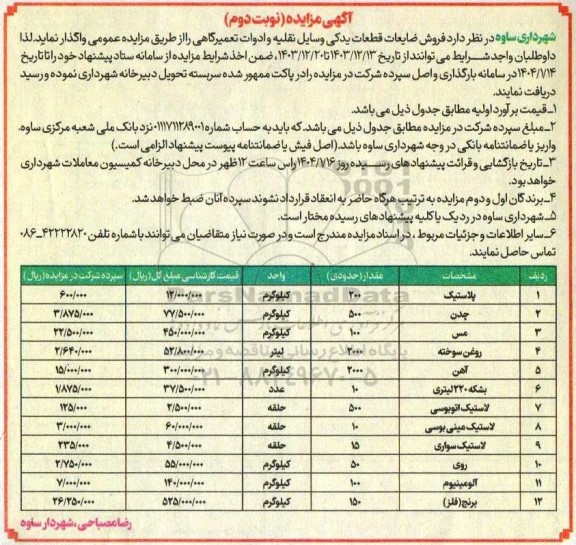 آگهی مزایده (نوبت دوم)
شهرداری ساوه در نظر دارد فروش ضایعات قطعات یدکی وسایل نقلیه و ادوات تعمیرگاهی را از طریق مزایده عمومی واگذار نماید. لذا
داوطلبان واجد شــرایط می توانند از تاریخ ۱۴۰۳/۱۲/۱۳ تا ۱۴۰۳/۱۲/۲۰، ضمن اخذ شرایط مزایده از سامانه ستاد پیشنهاد خود را تا تاریخ
۱۴۰۴/۱/۱۴ در سامانه بارگذاری و اصل سپرده شرکت در مزایده را در پاکت ممهور شده سربسته تحویل دبیرخانه شهرداری نموده و رسید
دریافت نمایند.
۱ـ قیمت برآورد اولیه مطابق جدول ذیل می باشد.
۲ـ مبلغ سپرده شرکت در مزایده مطابق جدول ذیل می باشد. که باید به حساب شماره ۰۱۱۱۷۱۱۲۸۹۰۰۱ نزد بانک ملی شعبه مرکزی ساوه،
واریز یا ضمانتنامه بانکی در وجه شهرداری ساوه باشد. (اصل فیش یا ضمانتنامه پیوست پیشنهاد الزامی است.)
۳ـ تاریخ بازگشایی و قرائت پیشنهادهای رسیده روز ۱۴۰۴/۱/۱۶ راس ساعت ۱۲ ظهر در محل دبیرخانه کمیسیون معاملات شهرداری
خواهد بود.
۴ـ برندگان اول و دوم مزایده به ترتیب هرگاه حاضر به انعقاد قرارداد نشوند سپرده آنان ضبط خواهد شد.
۵ـ شهرداری ساوه در رد یک یا کلیه پیشنهادهای رسیده مختار است.
۶ـ سایر اطلاعات و جزئیات مربوط، در اسناد مزایده مندرج است و در صورت نیاز متقاضیان می توانند با شماره تلفن ۴۲۲۲۲۸۲۰ـ۰۸۶
تماس حاصل نمایند.
ردیف مشخصات مقدار (حدودی) واحد قیمت کارشناسی مبلغ کل (ریال) سپرده شرکت در مزایده (ریال)
۱ پلاستیک ۲۰۰ کیلوگرم ۱۲/۰۰۰/۰۰۰ ۶۰۰/۰۰۰
۲ چدن ۵۰۰ کیلوگرم ۷۷/۵۰۰/۰۰۰ ۳/۸۷۵/۰۰۰
۳ مس ۱۰۰ کیلوگرم ۴۵۰/۰۰۰/۰۰۰ ۲۲/۵۰۰/۰۰۰
۴ روغن سوخته ۲۰۰۰ لیتر ۵۲/۸۰۰/۰۰۰ ۲/۶۴۰/۰۰۰
۵ آهن ۲۰۰۰ کیلوگرم ۳۰۰/۰۰۰/۰۰۰ ۱۵/۰۰۰/۰۰۰
۶ بشکه ۲۲۰ لیتری ۱۰ عدد ۳۷/۵۰۰/۰۰۰ ۱/۸۷۵/۰۰۰
۷ لاستیک اتوبوسی ۵۰۰ حلقه ۲/۵۰۰/۰۰۰ ۱۲۵/۰۰۰
۸ لاستیک مینی بوسی ۱۰ حلقه ۶۰/۰۰۰/۰۰۰ ۳/۰۰۰/۰۰۰
۹ لاستیک سواری ۱۵ حلقه ۴/۵۰۰/۰۰۰ ۲۳۵/۰۰۰
۱۰ روی ۵۰ کیلوگرم ۵۵/۰۰۰/۰۰۰ ۲/۷۵۰/۰۰۰
۱۱ آلومینیوم ۱۰۰ کیلوگرم ۱۴۰/۰۰۰/۰۰۰ ۷/۰۰۰/۰۰۰
۱۲ برنج (فلز) ۱۵۰ کیلوگرم ۵۲۵/۰۰۰/۰۰۰ ۲۶/۲۵۰/۰۰۰
رضا مصباحی، شهردار ساوه
ParsNamadData
پایگاه اطلاع رسانی مناقصه و مزایده
۰۲۱-۸۸۳۴۹۶۷۰-۵